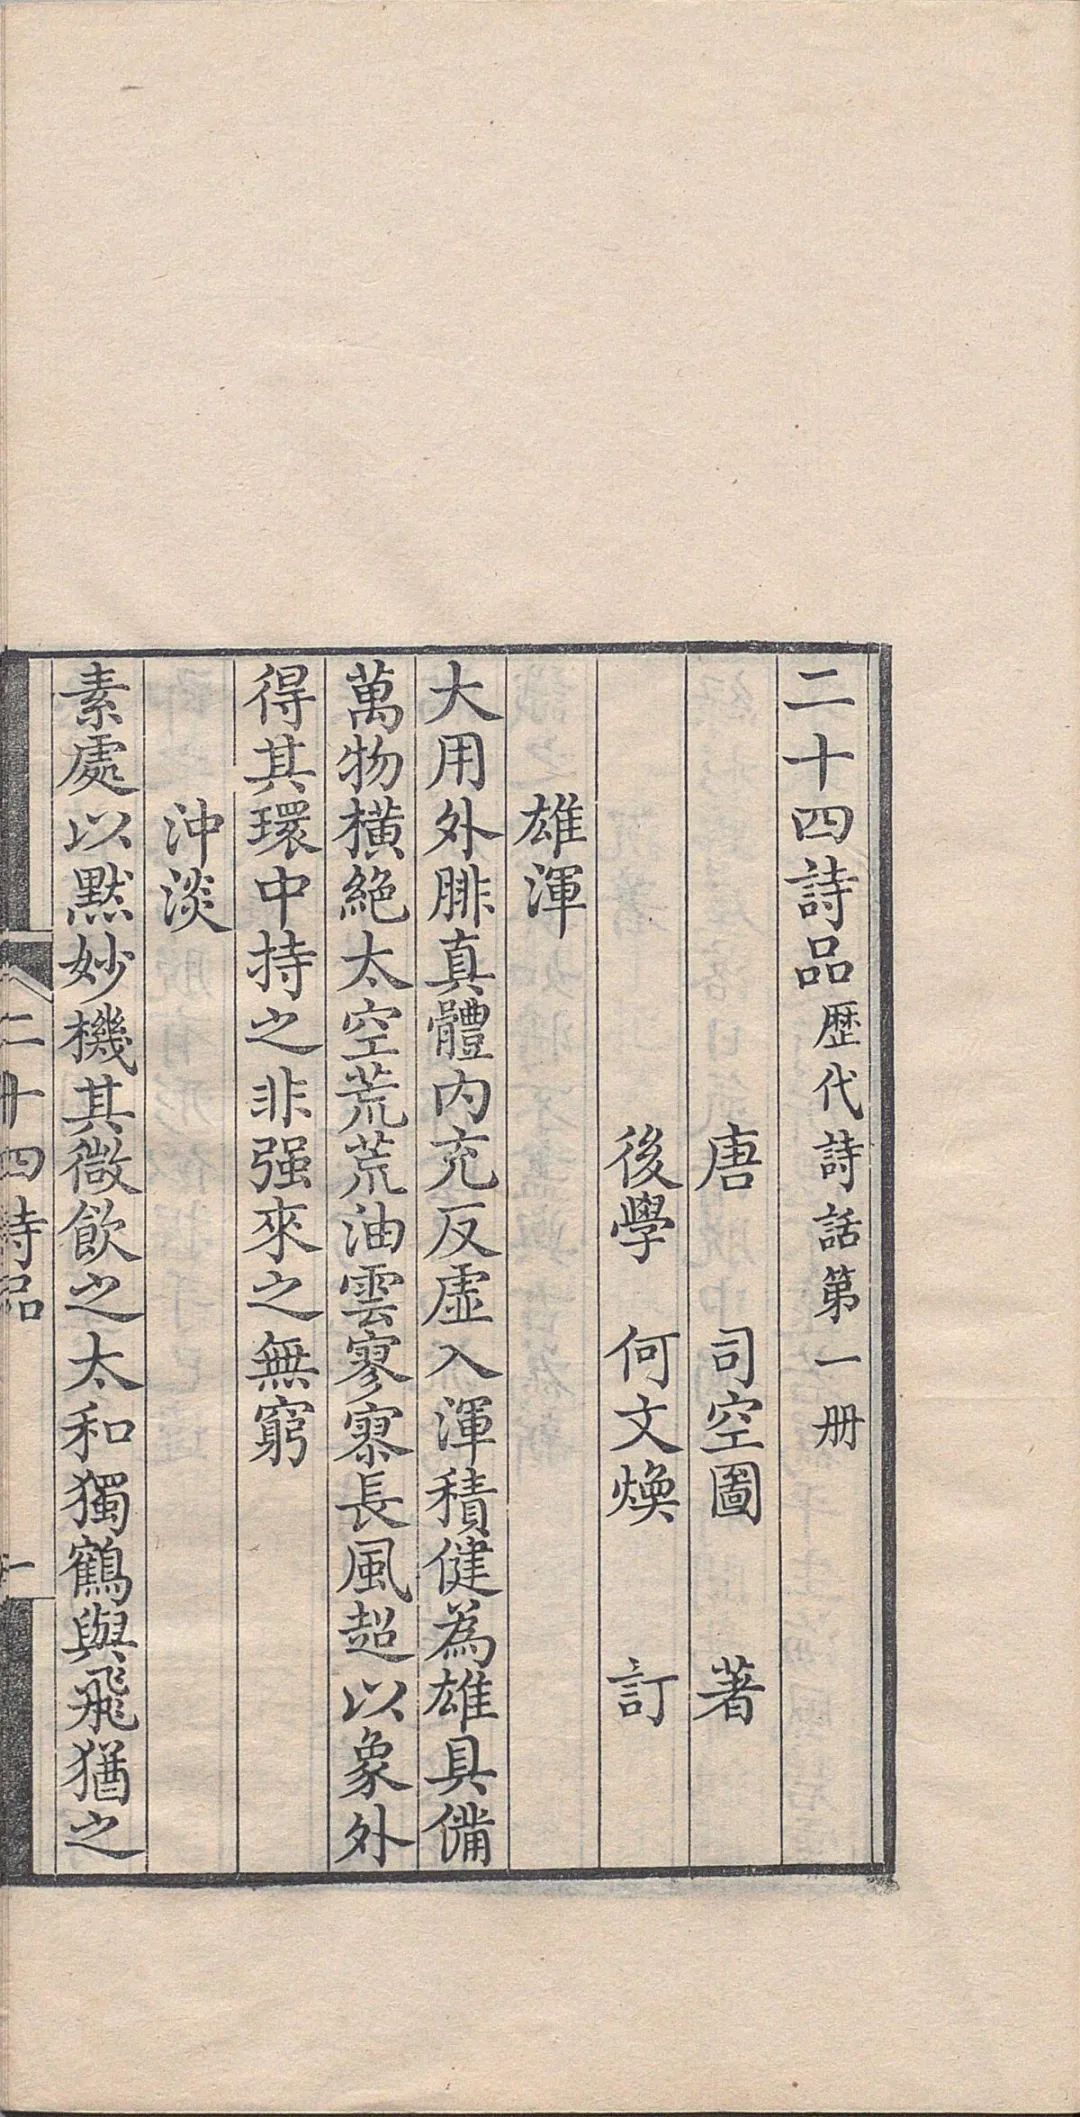 二十四詩品歷代詩話第一册
唐 司空圖 著
後學 何文煥 訂
雄渾
大用外腓真體內充反虛入渾積健為雄具備
萬物橫絕太空荒荒油雲寥寥長風超以象外
得其環中持之非强來之無窮
沖淡
素處以默妙機其微飲之太和獨鶴與飛猶之
二十四詩品 一